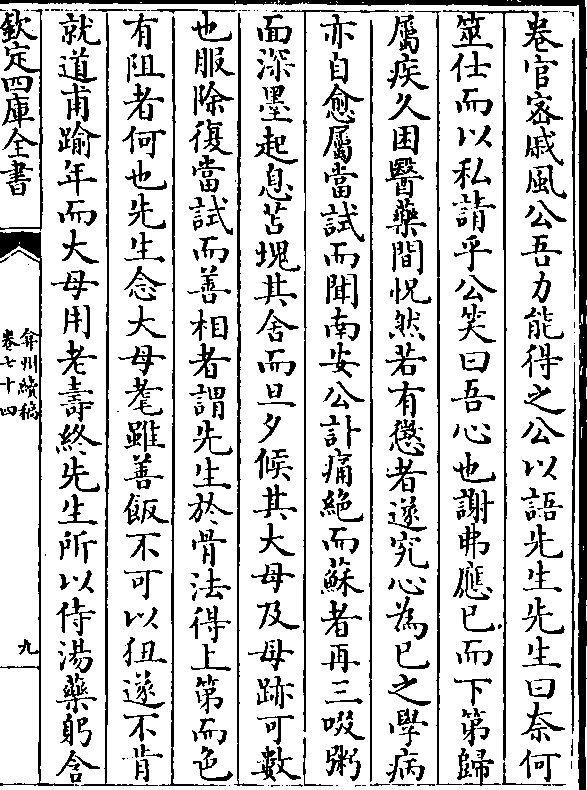 卷官宻戚風公吾力能得之公以語先生先生曰奈何
筮仕而以私請乎公笑曰吾心也謝弗應已而下第歸
屬疾久困醫藥間怳然若有懲者遂究心為已之學病
亦自愈屬當試而聞南安公訃痛絶而蘇者再三啜粥
面深墨起息苫塊其舍而旦夕候其大母及母跡可數
也服除復當試而善相者謂先生於骨法得上第而色
有阻者何也先生念大母耄雖善飯不可以狃遂不肯
就道甫踰年而大母用老壽終先生所以侍湯藥躬含
欽定四庫全書
弇州續稿
卷七十四
九